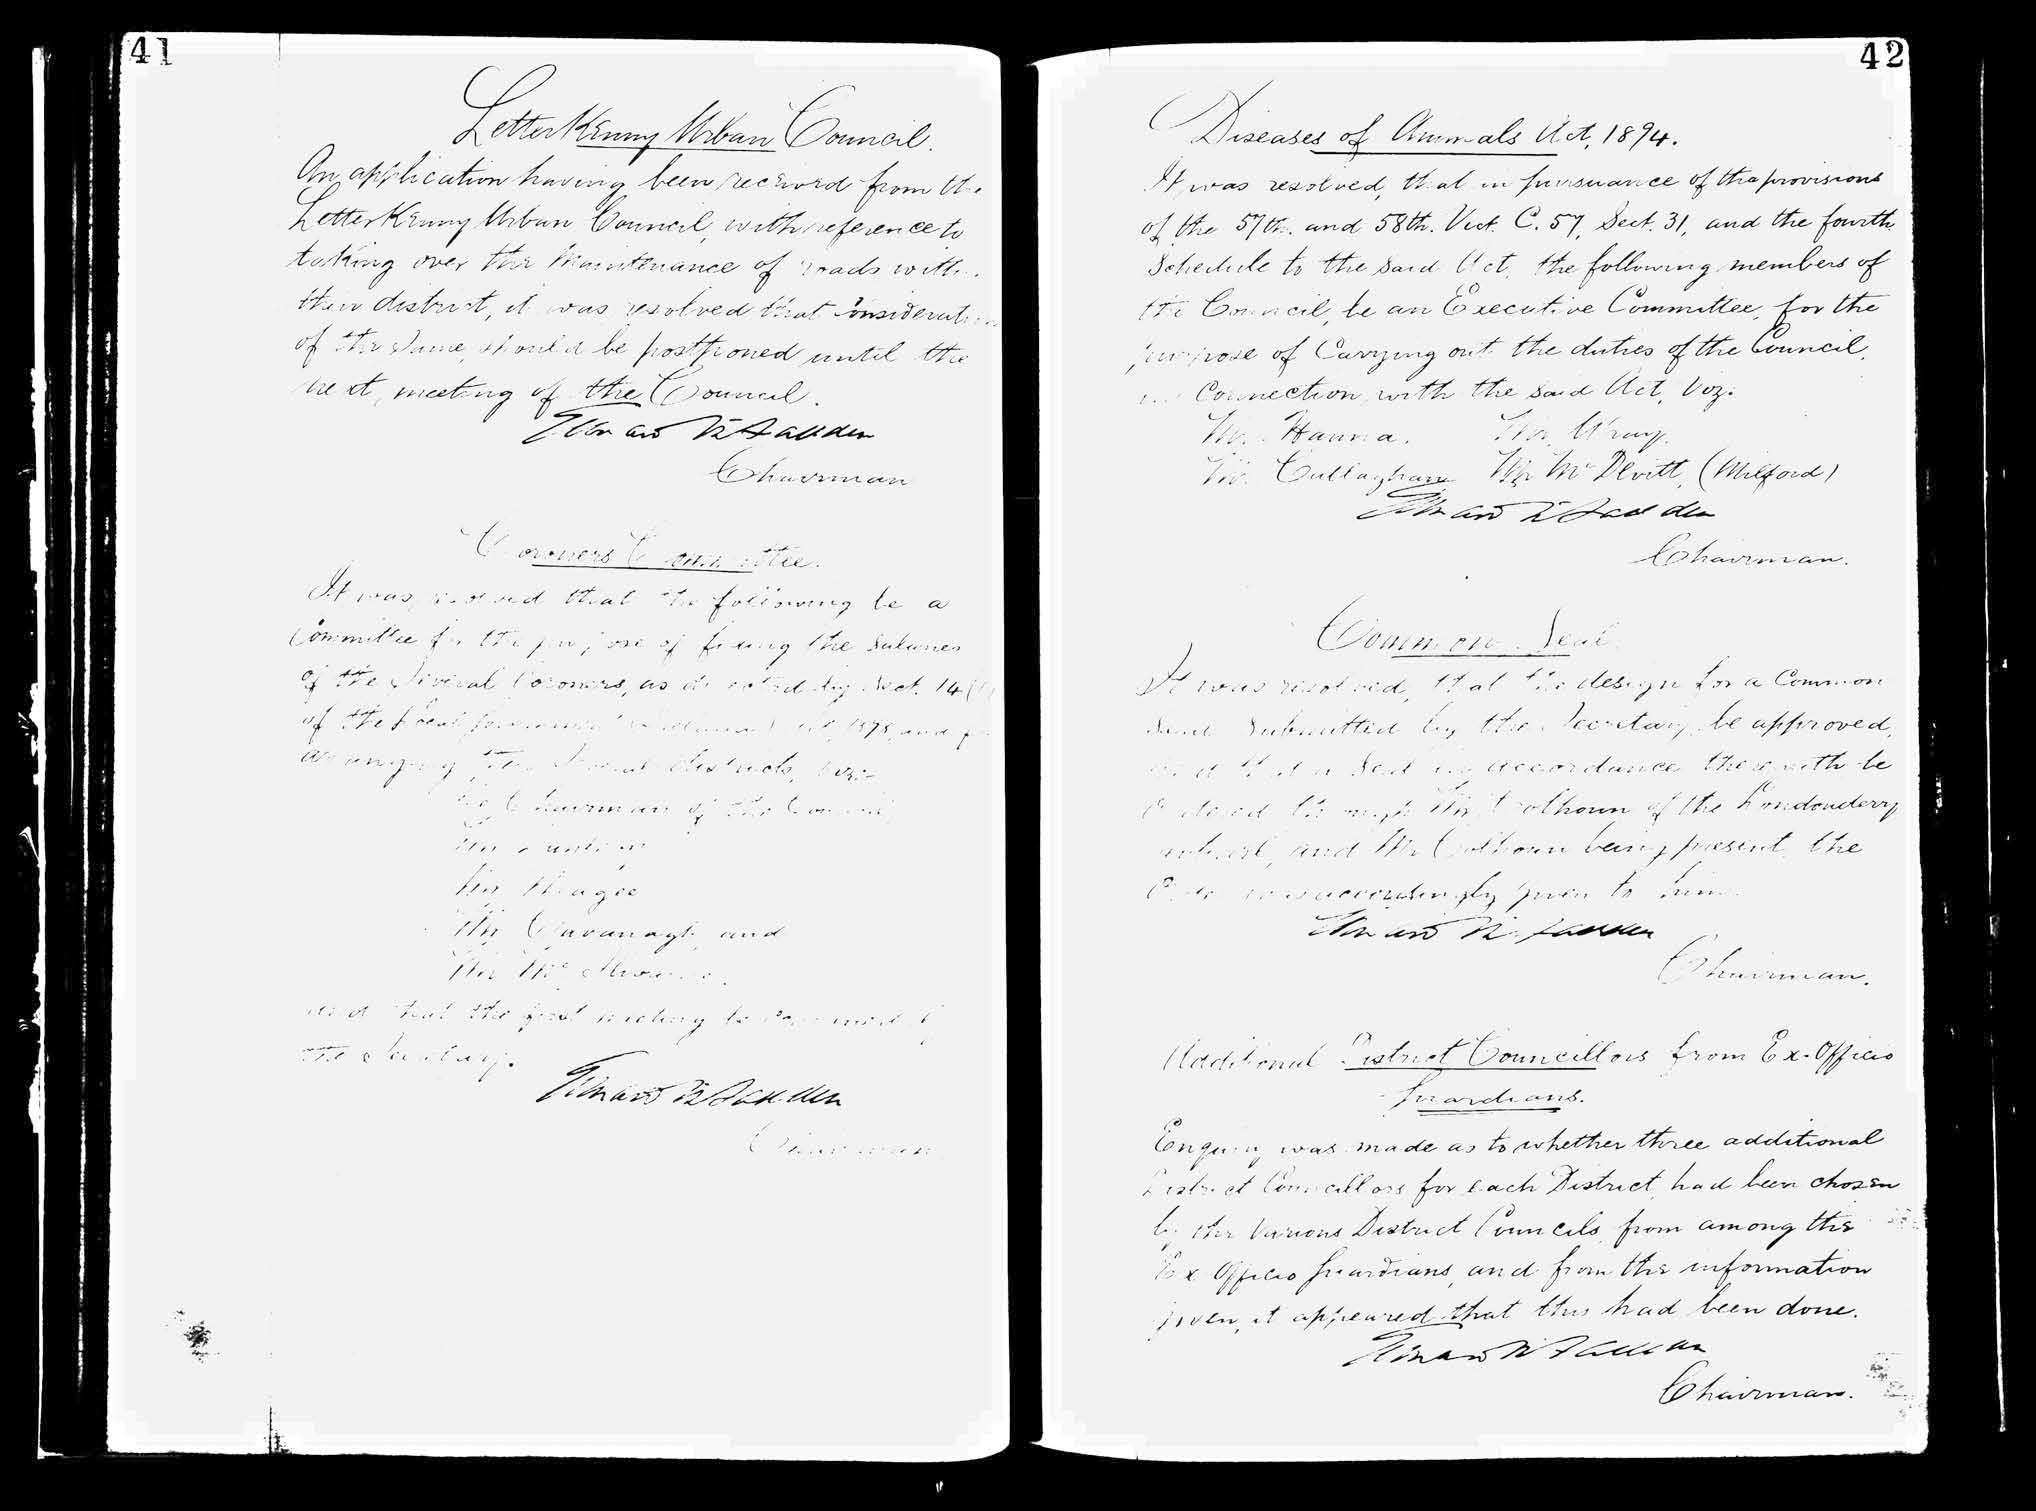 41
LetterKenny Urban Council.
An application having been received from the
LetterKenny Urban Council, with reference to
taking over the Maintenance of roads within
their district, it was resolved that consideration
of the same, should be postponed until the
next, meeting of the Council.
Edward McFadden
Chairman
Coroners Committee.
It was resolved that the following be a
Committee for the purpose of fixing the salaries
of the several Coroners, as directed by Sect. 14
of the Local Government Act, 1898, and for
arranging their several districts, viz:-
The Chairman of the Council
Mr
Mr Magee
Mr Cavanagh and
Mr Mc
and that the first meeting be convened by
the Secretary.
Edward McFadden
Chairman
42
Diseases of Animals Act, 1894.
It was resolved, that in pursuance of the provisions
of the 57th. and 58th. Vict. C. 57, Sect. 31, and the fourth
Schedule to the said Act, the following members of
the Council, be an Executive Committee, for the
purpose of Carrying out the duties of the Council,
in connection with the said Act, Viz.
Mr. Hanna. Mr Wray.
Mr. Callaghan Mr McDevitt, (Milford)
Edward McFadden
Chairman.
Common Seal
It was resolved, that the design for a Common
Seal submitted by the Secretary, be approved,
and that a Seal in accordance therewith be
ordered through Mr Colhoun of the Londonderry
Sentinel, and Mr Colhoun being present, the
Order was accordingly given to him.
Edward McFadden
Chairman.
Additional District Councillors from Ex-Officio
Guardians.
Enquiry was made as to whether three additional
District Councillors for each District, had been chosen
by the various District Councils, from among the
Ex Officio Guardians, and from the information
given, it appeared that this had been done.
Edward McFadden
Chairman.